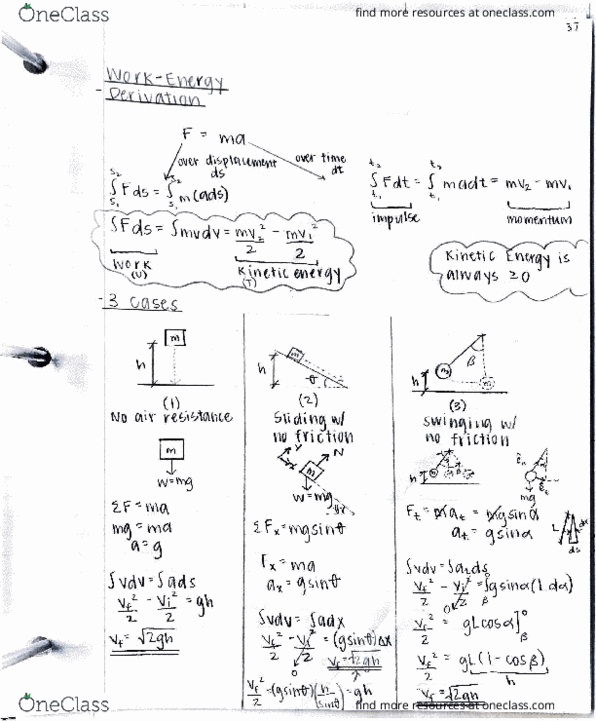 OneClass
find more resources at oneclass.com
37
Work-Energy
- Derivation
F = ma
over displacement ds
over time dt
∫Fds = ∫m(ads)
s₂ s₂
s₁ s₁
t₂ t₂
∫Fdt = ∫madt = mv₂ - mv₁
t₁ t₁
impulse momentum
∫Fds = ∫mvdv = mv₂²/2 - mv₁²/2
work (U)
kinetic energy (T)
Kinetic Energy is
always ≥0
- 3 cases
m
h
(1)
No air resistance
m
w=mg
ΣF = ma
mg = ma
a = g
∫vdv = ∫ads
vf²/2 - vi²/2 = gh
vf = √2gh
m
h
θ
(2)
Sliding w/
no friction
N
m
w=mg
ΣFx = mgsinθ
Fx = ma
ax = gsinθ
∫vdv = ∫adx
vf²/2 - vi²/2 = (gsinθ)Δx
0
vf = √2gh
vf²/2 = (gsinθ)(h/sinθ) = gh
β
m
h
(3)
swinging w/
no friction
h
mg
Ft = mat = mgsinα
at = gsinα
L
ds
∫vdv = ∫atds
vf²/2 - vi²/2 = ∫gsinα(Ldα)
0
β
vf²/2 = gLcosα]
0
β
vf²/2 = gL(1-cosβ)
h
vf = √2gh
OneClass
find more resources at oneclass.com